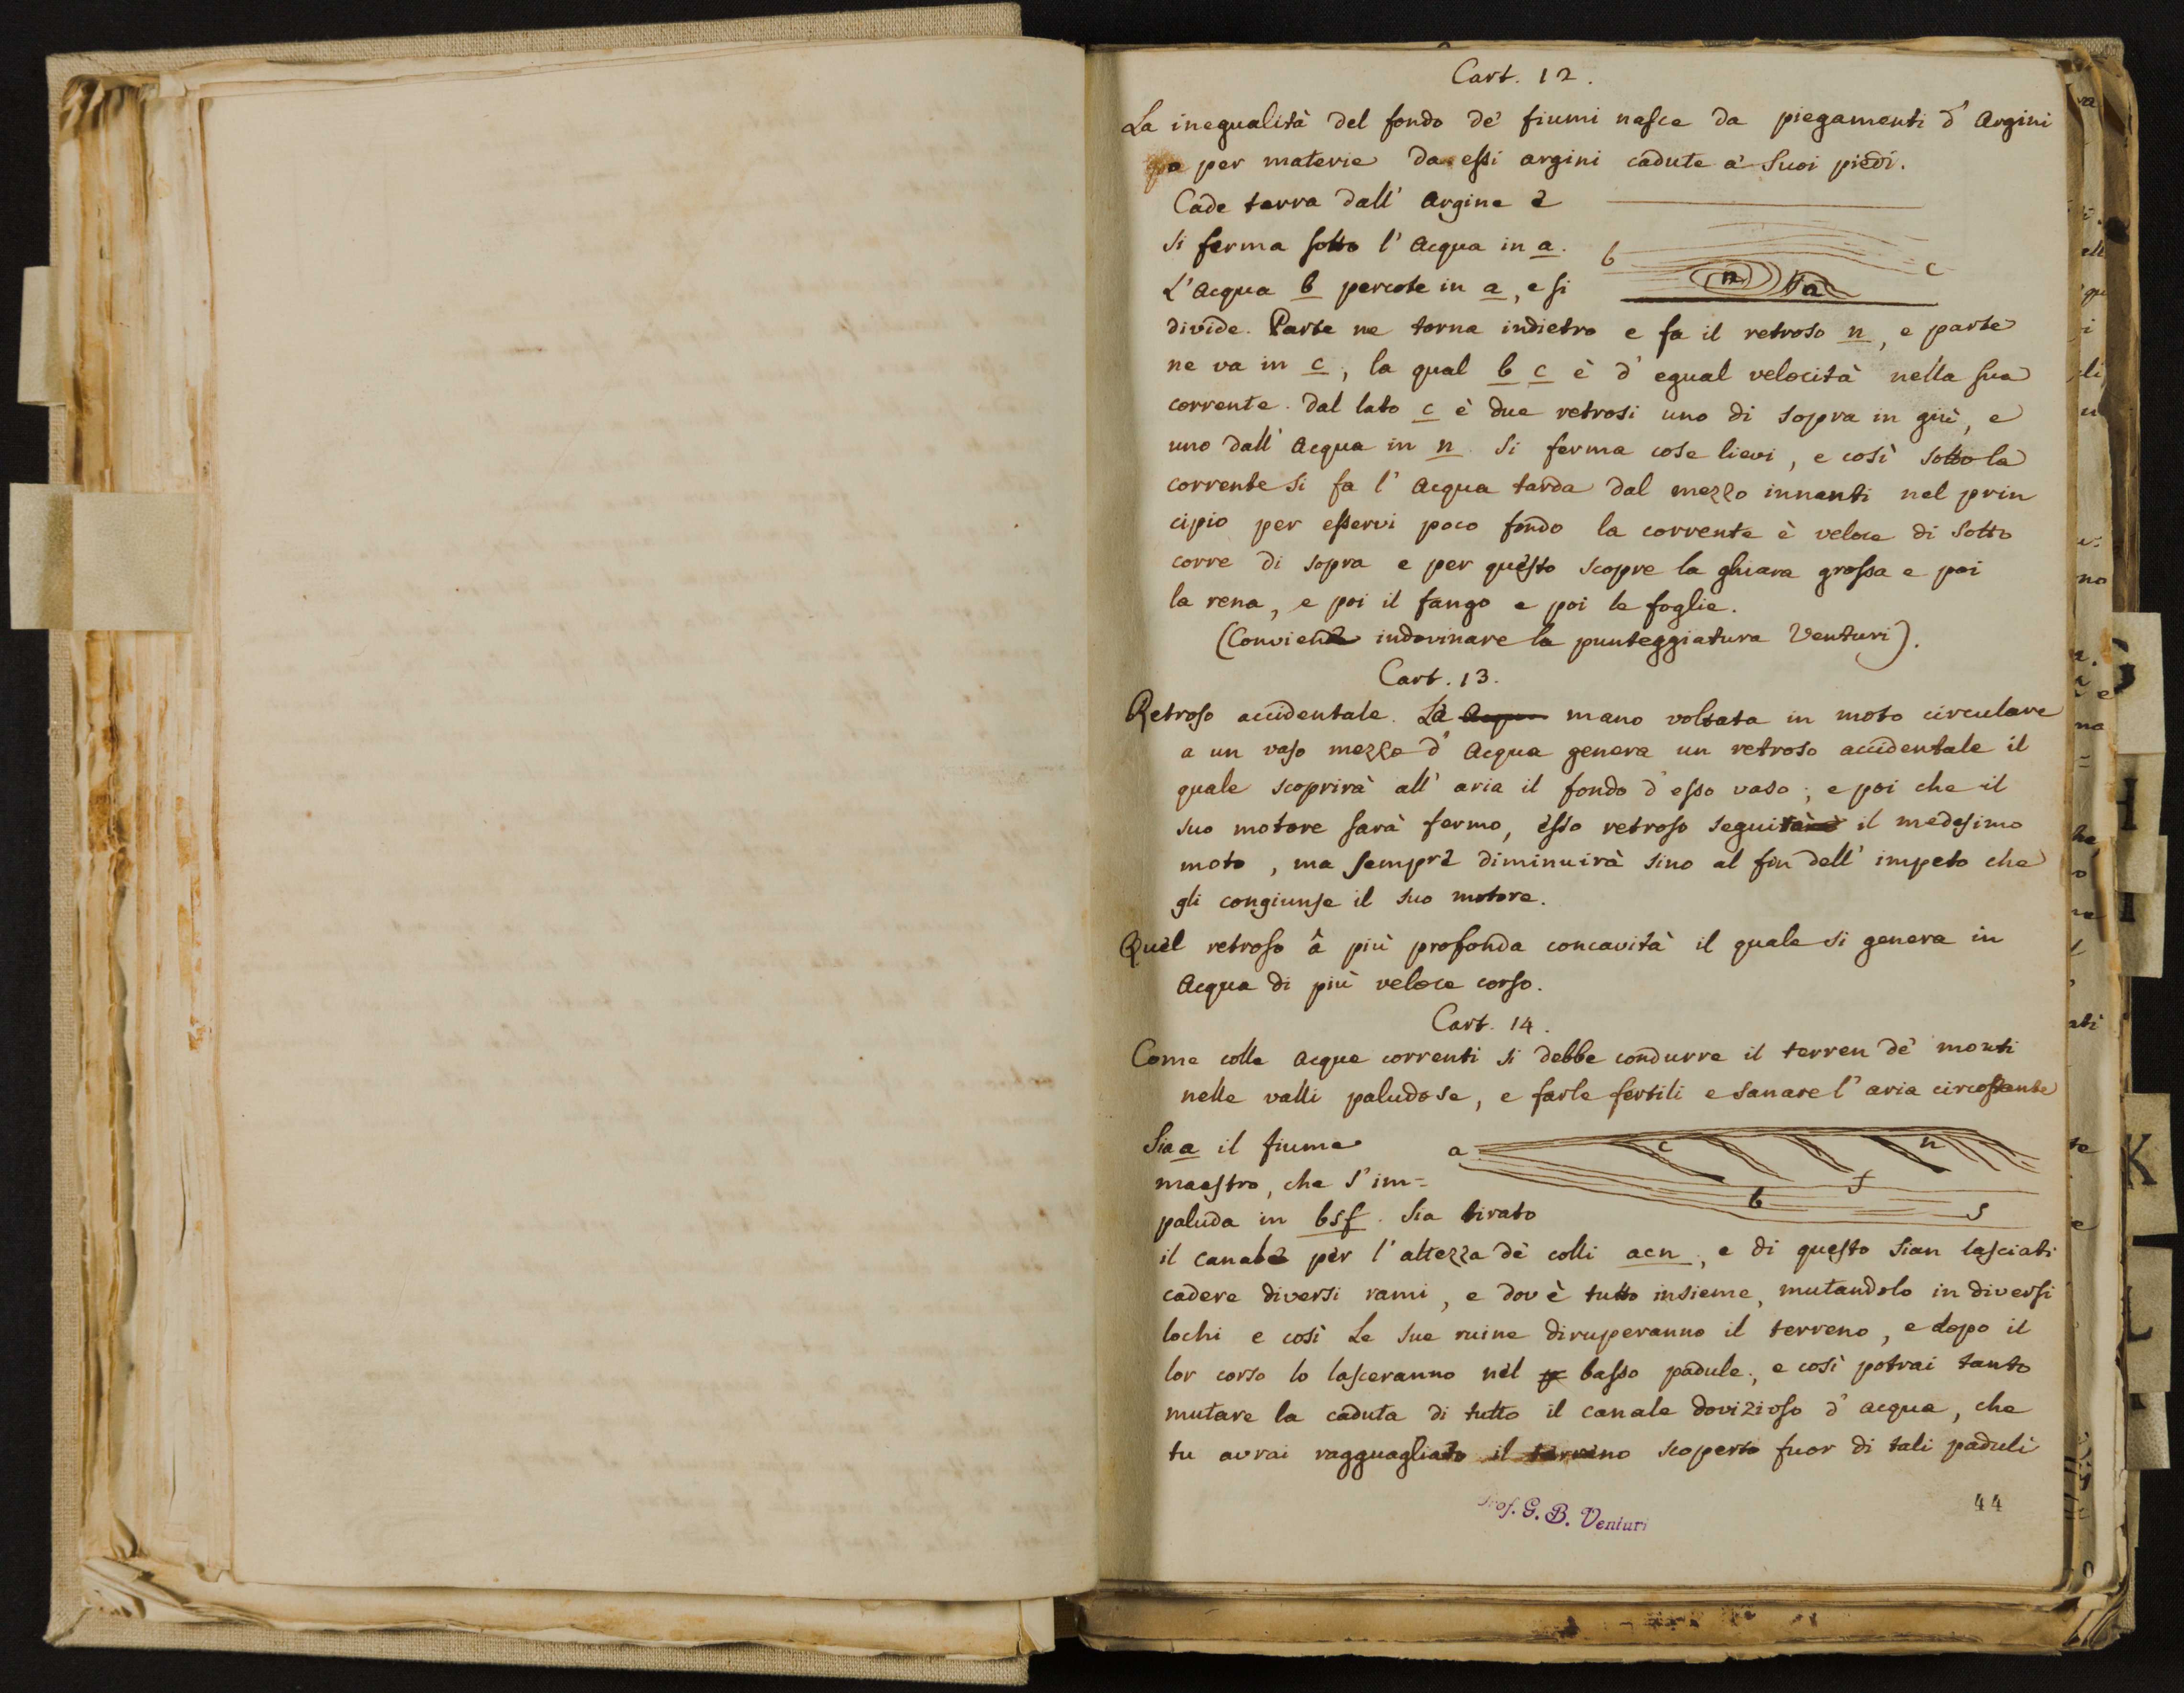 Cart. 12.
La inegualità del fondo de' fiumi nasce da piegamenti d'Argini
o per materie da essi argini cadute a' Suoi piedi.
Cade terra dall' Argine e
si ferma sotto l' Acqua in a.
L' Acqua b percote in a, e si
b n a c
divide. Parte ne torna indietro e fa il retroso n, e parte
ne va in c, la qual b c è d' egual velocità nella sua
corrente. Dal lato c è due retrosi uno di sopra in giù, e
uno dall' Acqua in n. Si ferma cose lievi, e così sotto la
corrente si fa l' Acqua tarda dal mezzo innanti nel prin
cipio per esservi poco fondo la corrente è veloce di Sotto
corre di sopra e per questo scopre la ghiara grossa e poi
la rena, e poi il fango e poi le foglie.
(Conviene indovinare la punteggiatura Venturi).
Cart. 13.
Retroso accidentale. La Acqua mano voltata in moto circulare
a un vaso mezzo d' Acqua genera un retroso accidentale il
quale scoprirà all' aria il fondo d' esso vaso; e poi che il
suo motore sarà fermo, esso retroso seguirà il medesimo
moto, ma sempre diminuirà sino al fin dell' impeto che
gli congiunse il suo motore.
Quel retroso â più profonda concavità il quale si genera in
Acqua di più veloce corso.
Cart. 14.
Come colle Acque correnti si debbe condurre il terren de' monti
nelle valli paludose, e farle fertili e sanare l' aria circostante
Sia a il fiume
maestro, che s' im=
paluda in bsf. Sia tirato
a c n f b s
il canale per l' altezza de' colli acn, e di questo sian lasciati
cadere diversi rami, e dov è tutto insieme, mutandolo in diversi
lochi e così Le sue ruine diruperanno il terreno, e dopo il
lor corso lo lasceranno nel basso padule; e così potrai tanto
mutare la caduta di tutto il canale dovizioso d' acqua, che
tu avrai ragguagliato il terreno scoperto fuor di tali paduli
Prof. G. B. Venturi
44
K
L